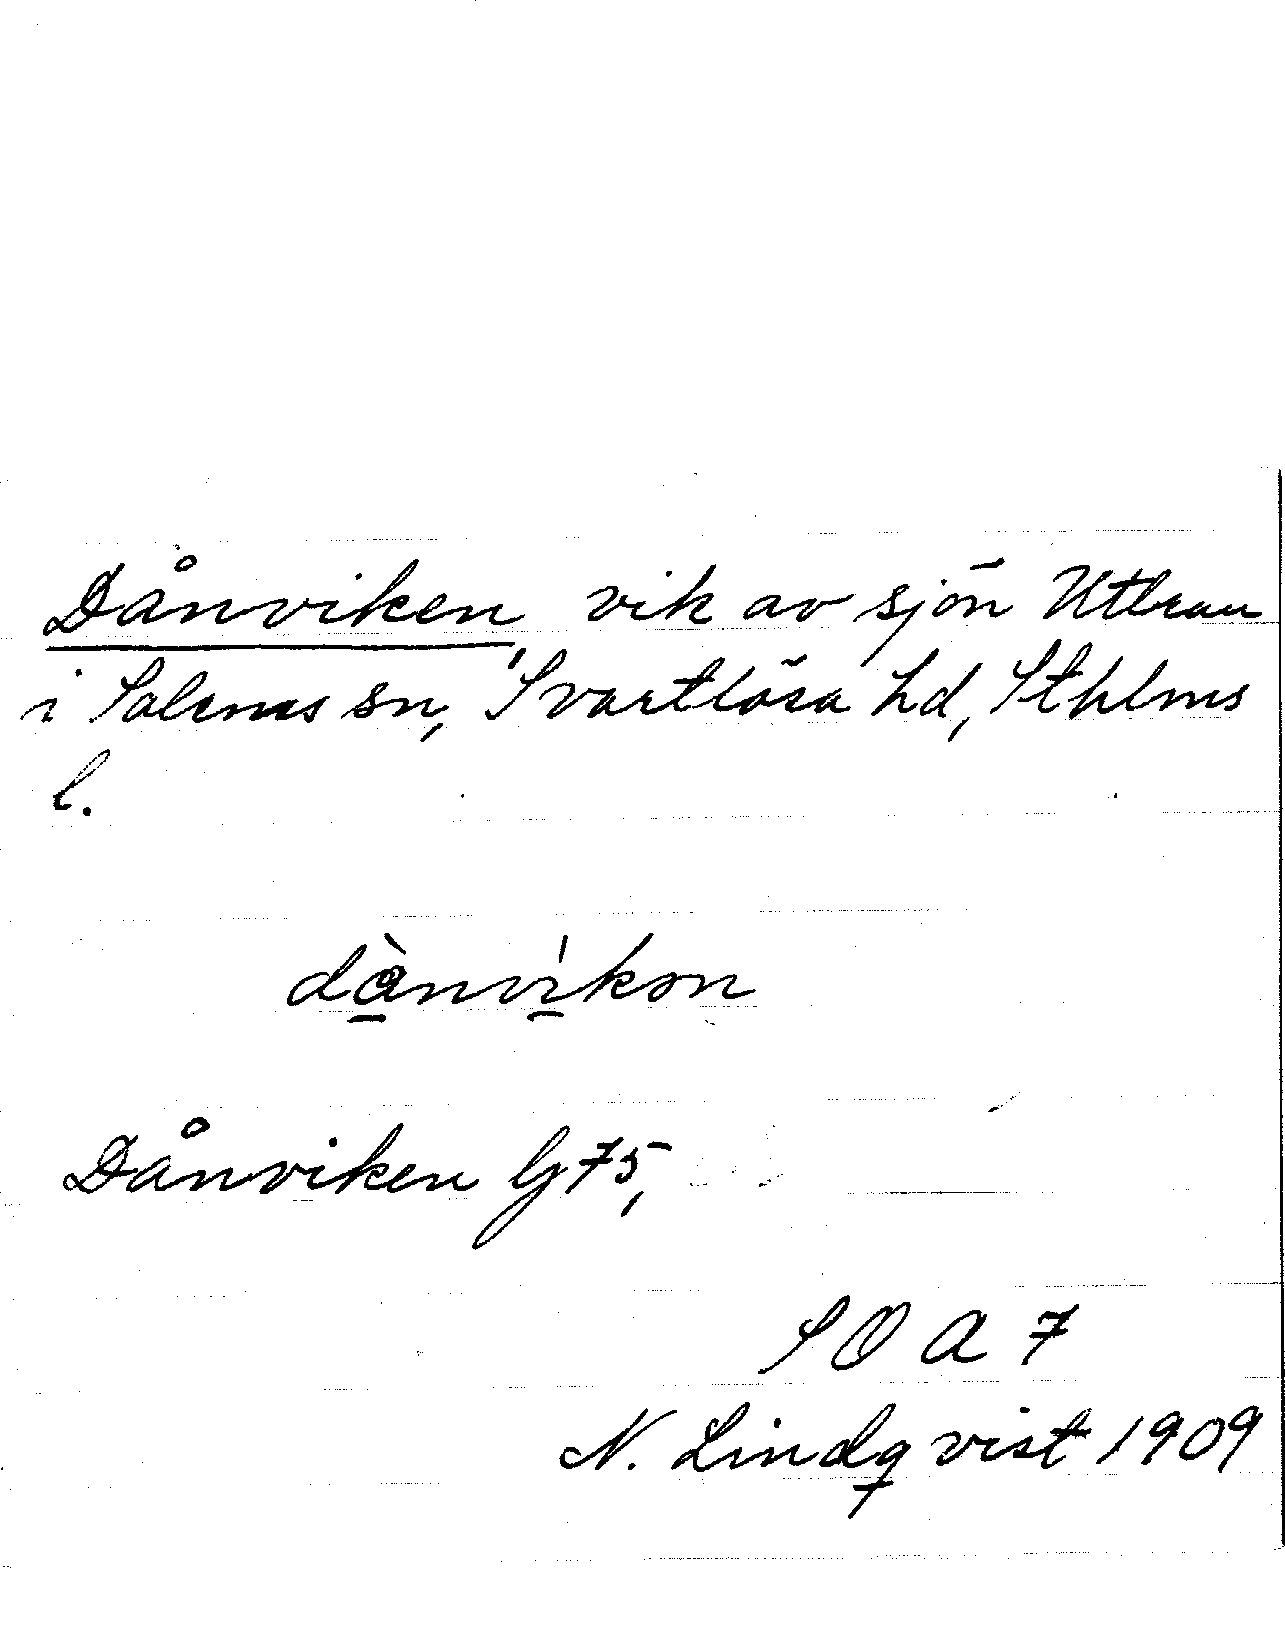 Dånviken, vik av sjön Uttran
i Salems sn, Svartlösa hd, Sthlms
l.
då̀nvi̍kən
Dånviken G 75,
SOA 7
N. Lindqvist 1909